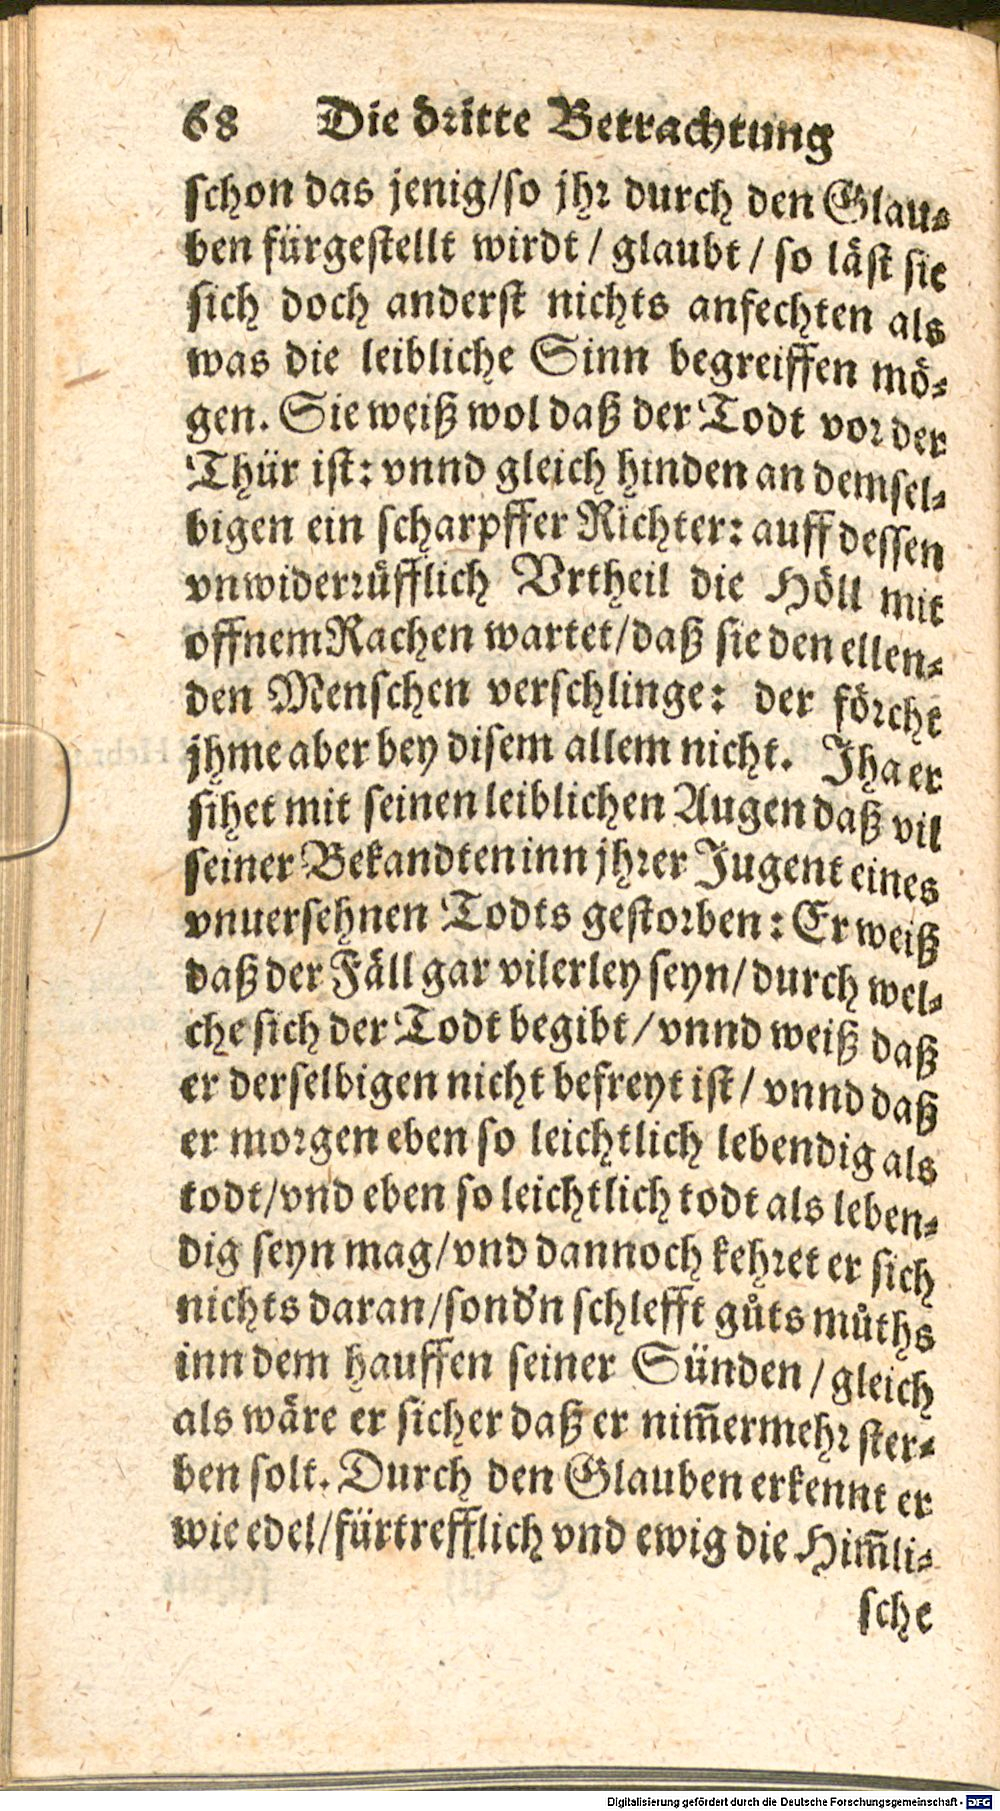 68 Die dritte Betrachtung
schon das jenig/so jhr durch den Glau-
ben fürgestellt wirdt / glaubt / so läst sie
sich doch anderst nichts anfechten als
was die leibliche Sinn begreiffen mö-
gen. Sie weiß wol daß der Todt vor der
Thür ist: vnnd gleich hinden an demsel-
bigen ein scharpffer Richter: auff dessen
vnwiderrüfflich Vrtheil die Höll mit
offnem Rachen wartet/daß sie den ellen-
den Menschen verschlinge: der förcht
jhme aber bey disem allem nicht. Jha er
sihet mit seinen leiblichen Augen daß vil
seiner Bekandten inn jhrer Jugent eines
vnuersehnen Todts gestorben: Er weiß
daß der Fäll gar vilerley seyn/durch wel-
che sich der Todt begibt/vnnd weiß daß
er derselbigen nicht befreyt ist/ vnnd daß
er morgen eben so leichtlich lebendig als
todt/vnd eben so leichtlich todt als leben-
dig seyn mag/vnd dannoch kehret er sich
nichts daran/sond'n schlefft gůts můths
inn dem hauffen seiner Sünden / gleich
als wäre er sicher daß er nim̃ermehr ster-
ben solt. Durch den Glauben erkennt er
wie edel/fürtrefflich vnd ewig die Him̃li-
sche
Digitalisierung gefördert durch die Deutsche Forschungsgemeinschaft - DFG